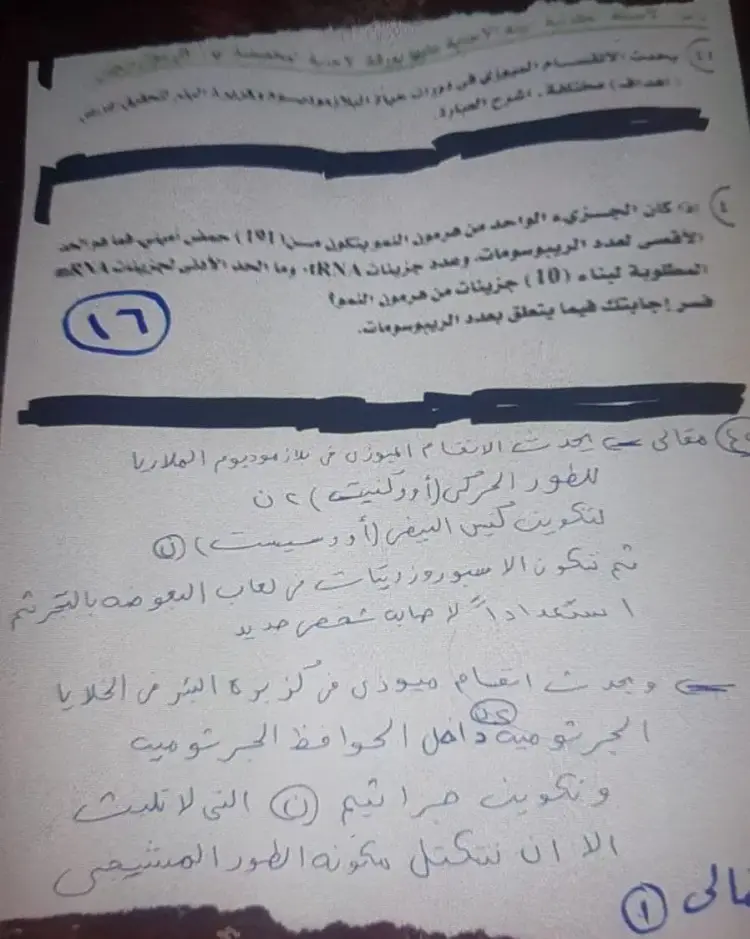 يحدث الانقسام الميوزي في دورات حياة البلازموديوم وكزبرة البئر لتحقيق
أهداف مختلفة. اشرح العبارة.
إذا كان الجزيء الواحد من هرمون النمو يتكون من (191) حمض أميني فما هو الحد
الأقصى لعدد الريبوسومات، وعدد جزيئات tRNA، وما الحد الأدنى لجزيئات mRNA
المطلوبة لبناء (10) جزيئات من هرمون النمو؟
فسر إجابتك فيما يتعلق بعدد الريبوسومات.
١٦
مقالى يحدث الانقسام الميوزى فى بلازموديوم الملاريا
للطور الحركى (أووكنيت) ٢ن
لتكوين كيس البيض (أووسيست) (ن)
ثم تتكون الاسبوروزويتات فى لعاب البعوضه بالتجرثم
استعداداً لاصابه شخص جديد
ويحدث انقسام ميوزى فى كزبرة البئر فى الخلايا
الجرثوميه ٢ن داخل الحوافظ الجرثوميه
وتكوين جراثيم (ن) التى لا تلبث
الا ان تتكتل مكونه الطور المشيجى
١